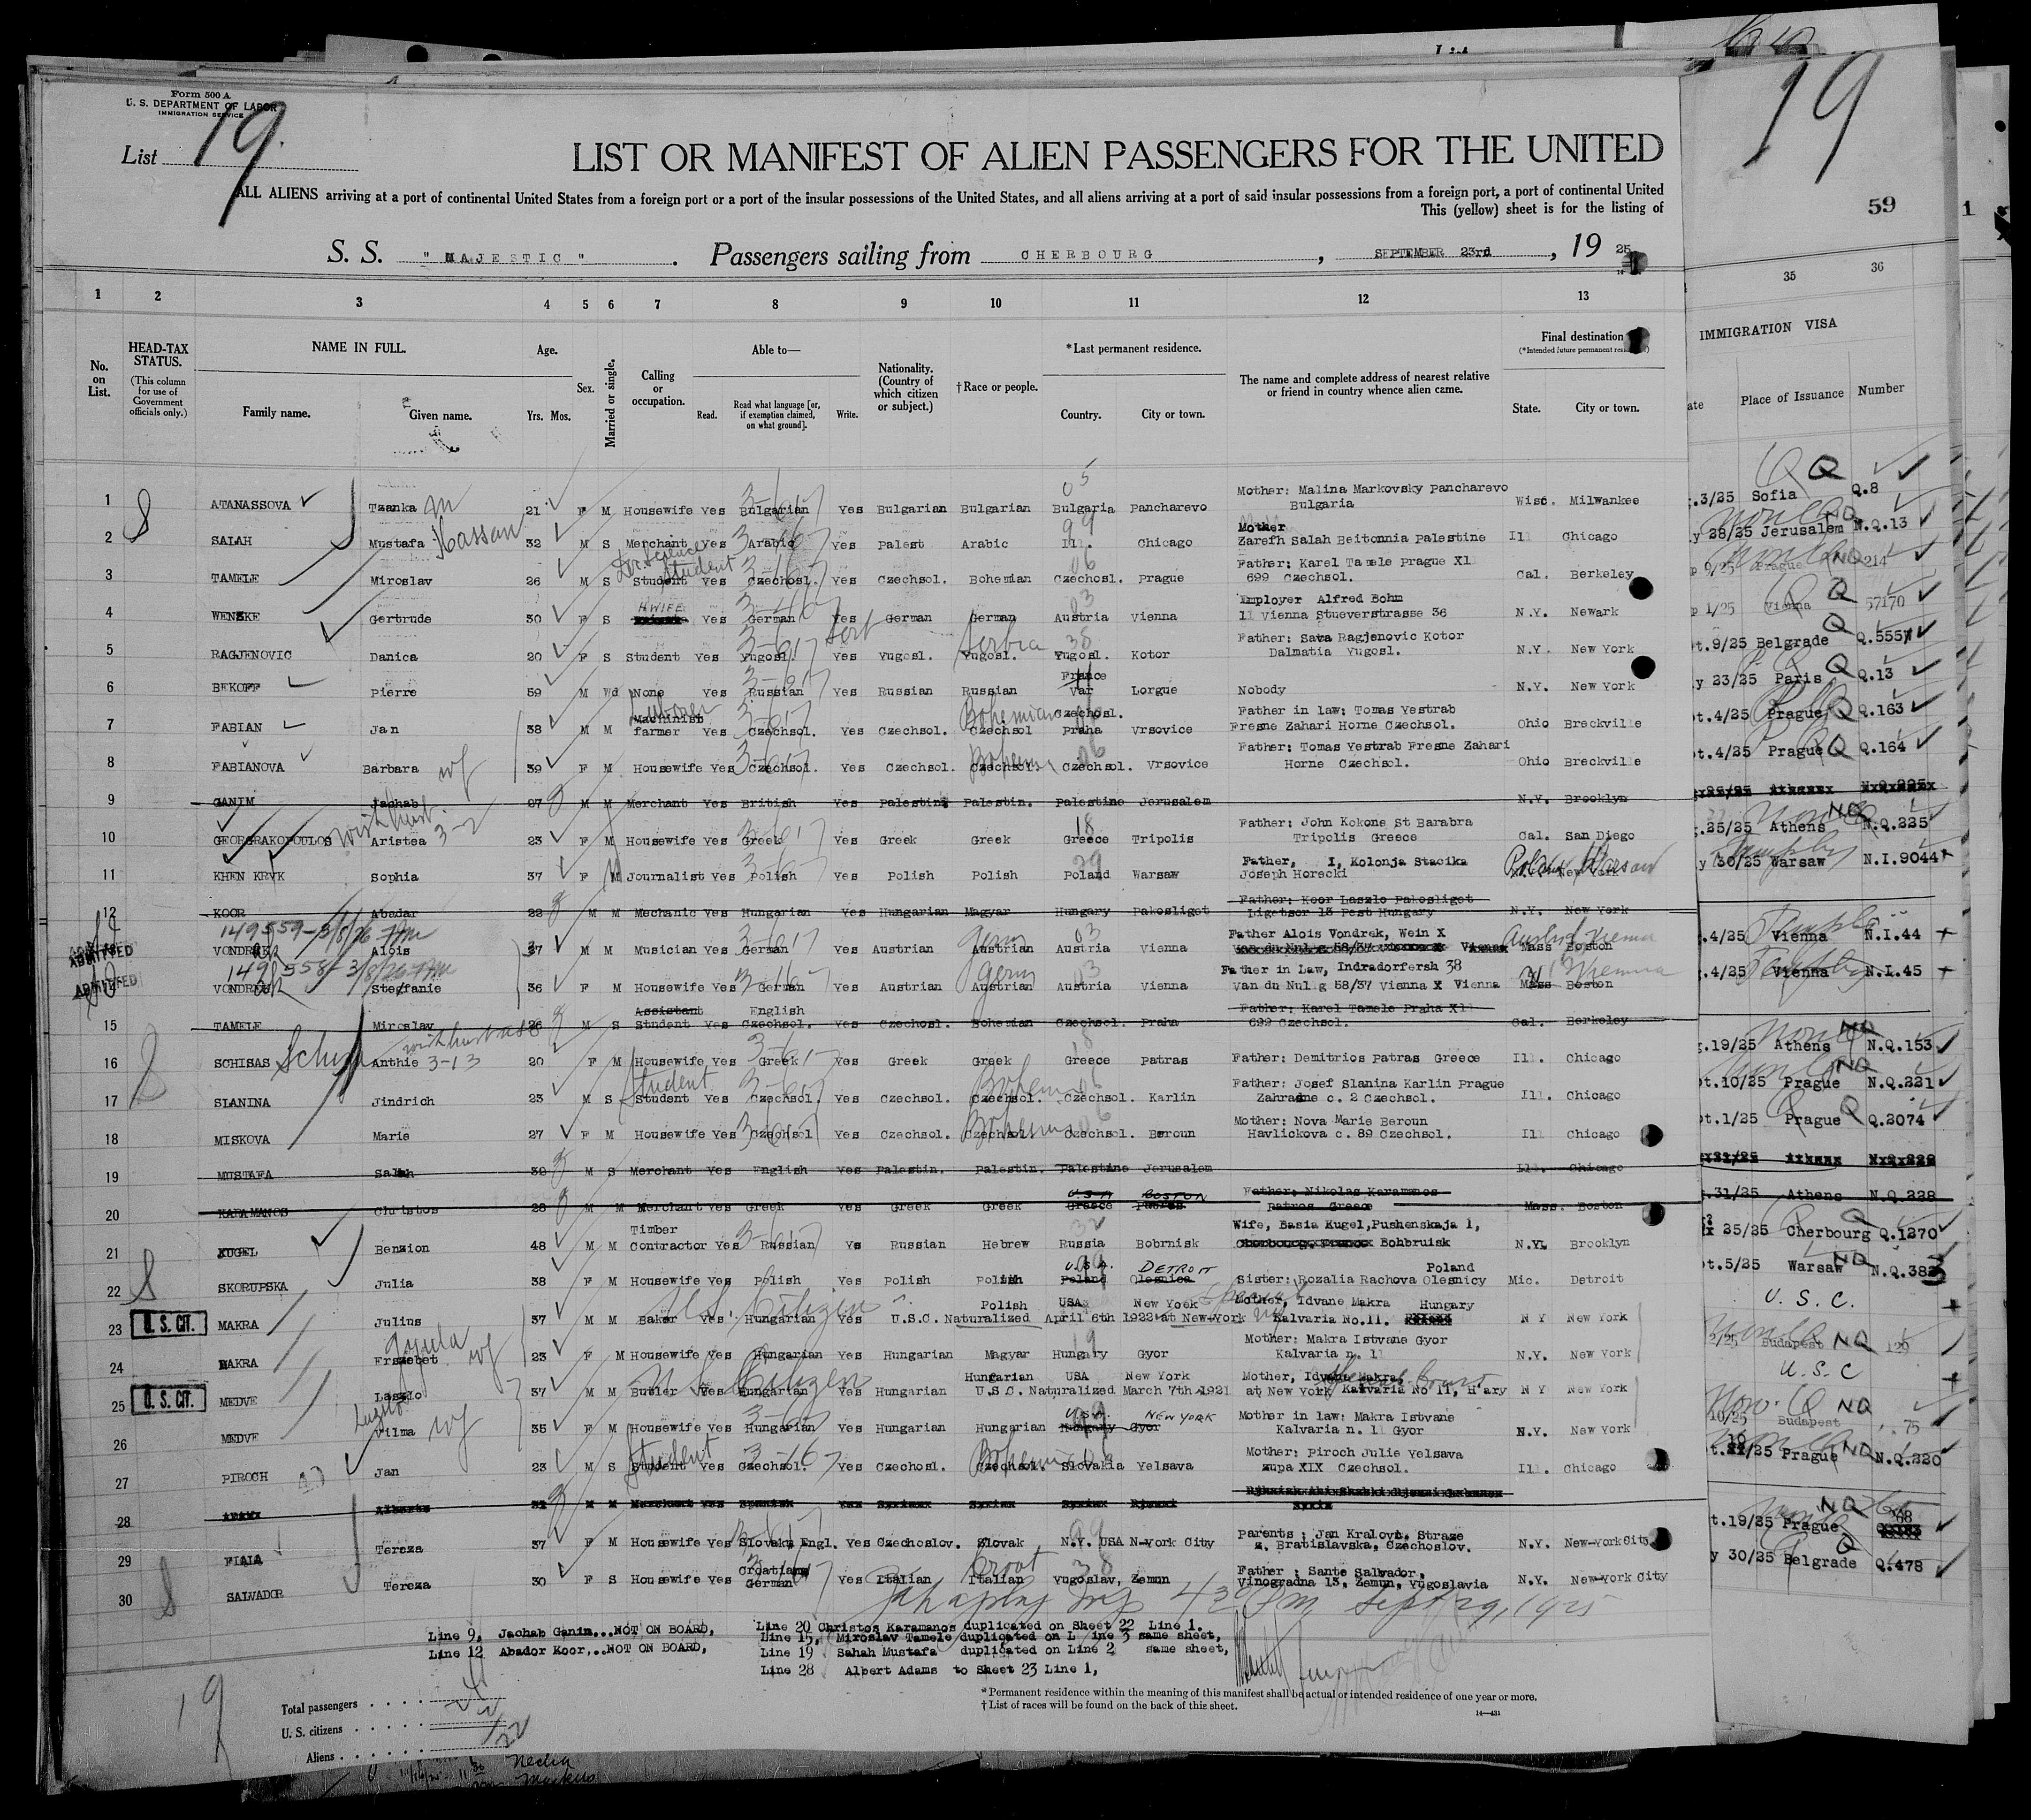 Form 500 A
U. S. DEPARTMENT OF LABOR
IMMIGRATION SERVICE
List 19.
19
59
1
LIST OR MANIFEST OF ALIEN PASSENGERS FOR THE UNITED
ALL ALIENS arriving at a port of continental United States from a foreign port or a port of the insular possessions of the United States, and all aliens arriving at a port of said insular possessions from a foreign port, a port of continental United
This (yellow) sheet is for the listing of
S. S. "MAJESTIC". Passengers sailing from CHERBOURG, SEPTEMBER 23rd, 19 25
1 2 3 4 5 6 7 8 9 10 11 12 13 35 36
No. on List. HEAD-TAX STATUS. (This column for use of Government officials only.) NAME IN FULL. Family name. Given name. Age. Yrs. Mos. Sex. Married or single. Calling or occupation. Able to— Read. Read what language [or, if exemption claimed, on what ground]. Write. Nationality. (Country of which citizen or subject.) †Race or people. *Last permanent residence. Country. City or town. The name and complete address of nearest relative or friend in country whence alien came. Final destination (*Intended future permanent State. City or town. IMMIGRATION VISA Place of Issuance Number
1 ATANASSOVA Tzanka 21 F M Housewife Yes Bulgarian Yes Bulgarian Bulgarian Bulgaria Pancharevo Mother: Malina Markovsky Pancharevo Bulgaria Wisc. Milwankee .3/25 Sofia Q.8
2 SALAH Mustafa Hassan 32 M S Merchant Yes Arabic Yes Palest Arabic Ill. Chicago Mother Zarefh Salah Beitonnia Palestine Ill Chicago y 28/25 Jerusalem N.Q.13
3 TAMELE Miroslav 26 M S Student Yes Czechosl. Yes Czechsol. Bohemian Czechosl. Prague Father: Karel Tamele Prague X1 699 Czechsol. Cal. Berkeley p 9/25 Prague NQ 214
4 WENSKE Gertrude 30 F S HWIFE Yes German Yes German German Austria Vienna Employer Alfred Bohm 11 Vienna Stueverstrasse 36 N.Y. Newark p 1/25 Vienna Q 57170
5 RAGJENOVIC Danica 20 F S Student Yes Yugosl. Yes Yugosl. Yugosl. Serbia Yugosl. Kotor Father: Sava Ragjenovic Kotor Dalmatia Yugosl. N.Y. New York t.9/25 Belgrade Q.5557
6 BEKOFF Pierre 59 M Wd None Yes Russian Yes Russian Russian France Var Lorgue Nobody N.Y. New York y 23/25 Paris Q.13
7 FABIAN Jan 38 M M Laborer Machinist farmer Yes Czechsol. Yes Czechsol. Bohemian Czechsol Czechosl. Praha Vrsovice Father in law: Tomas Vestrab Fresne Zahari Horne Czechsol. Ohio Breckville t.4/25 Prague Q.163
8 FABIANOVA Barbara wf 39 F M Housewife Yes Czechsol. Yes Czechsol. Czechsol. Czechsol. Vrsovice Father: Tomas Vestrab Fresne Zahari Horne Czechsol. Ohio Breckville t.4/25 Prague Q.164
9 GANIM Jachab 27 M M Merchant Yes British Yes Palestine Palestin. Palestine Jerusalem N.Y. Brooklyn
10 GEORGRAKOPOULOS Aristea 23 F M Housewife Yes Greek Yes Greek Greek Greece Tripolis Father: John Kokone St Barabra Tripolis Greece Cal. San Diego .25/25 Athens N.Q.225
11 KHEN KRYK Sophia 37 F M Journalist Yes Polish Yes Polish Polish Poland Warsaw Father, I, Kolonja Stacika Joseph Horecki Poland Warsaw y 30/25 Warsaw N.I.9044
12 KOOR Abadar 22 M M Mechanic Yes Hungarian Yes Hungarian Magyar Hungary Pakosliget Father: Koor Laszlo Pakosliget Ligetsor 13 Pest Hungary N.Y. New York
ADMITTED 149559-3/8/26 VONDREK Alois 37 M M Musician Yes German Yes Austrian Germ Austrian Austria Vienna Father Alois Vondrek, Wein X Mass Boston Austria Vienna .4/25 Vienna N.I.44
ADMITTED 149558-3/8/26 VONDREK Stefanie 36 F M Housewife Yes German Yes Austrian Germ Austrian Austria Vienna Father in Law, Indradorfersh 38 van du Nullg 58/37 Vienna X Vienna Mass Boston Vienna .4/25 Vienna N.I.45
15 TAMELE Miroslav 26 M S Assistant Student Yes English Czechsol. Yes Czechosl. Bohemian Czechsol. Praha Father: Karel Tamele Praha X1 699 Czechsol. Cal. Berkeley
16 SCHISAS Anthie 3-13 20 F M Housewife Yes Greek Yes Greek Greek Greece Patras Father: Demitrios Patras Greece Ill. Chicago .19/25 Athens N.Q.153
17 SLANINA Jindrich 23 M S Student Student Yes Czechsol. Yes Czechsol. Bohem Czechsol. Czechsol. Karlin Father: Josef Slanina Karlin Prague Zahradne c. 2 Czechsol. Ill. Chicago t.10/25 Prague N.Q.221
18 MISKOVA Marie 27 F M Housewife Yes Czechsol Yes Czechsol. Czechsol. Czechsol. Beroun Mother: Nova Marie Beroun Havlickova c. 89 Czechsol. Ill Chicago t.1/25 Prague Q.2074
19 MUSTAFA Salah 32 M S Merchant Yes English Yes Palestin. Palestin. Palestine Jerusalem Ill. Chicago
20 KARAMANOS Christos 28 M M Merchant Yes Greek Yes Greek Greek U.S.A BOSTON Greece Patras Father: Nikolas Karamanos Patros Greece Mass. Boston .31/25 Athens N.Q.228
21 KUGEL Benzion 48 M M Timber Contractor Yes Russian Yes Russian Hebrew Russia Bobrnisk Wife, Basia Kugel, Pushenskaja 1, Bohbruisk N.Y. Brooklyn 25/25 Cherbourg Q.1270
22 SKORUPSKA Julia 38 F M Housewife Yes Polish Yes Polish Polish U.S.A. DETROIT Poland Olesnica Sister: Rozalia Rachova Olesnicy Poland Mic. Detroit t.5/25 Warsaw N.Q.383
23 U. S. CIT. MAKRA Julius 37 M M Baker Yes U.S. Citizen Hungarian Yes Polish USA New Yoek U.S.C. Naturalized April 6th 1922 at New-York Mother, Idvane Makra Hungary Kalvaria No.11. N Y New York U.S.C.
24 MAKRA Gyula wf Erszebet 23 F M Housewife Yes Hungarian Yes Hungarian Magyar Hungary Gyor Mother: Makra Istvane Gyor Kalvaria n. 11 N.Y. New York 2/25 Budapest NQ 129
25 U. S. CIT. MEDVE Laszlo 37 M M Butler Yes U S Citizen Hungarian Yes Hungarian Hungarian USA New York U.S.C. Naturalized March 7th 1921 at New York Mother, Idvane Makra Kalvaria No 11, H'ary N Y New York U.S.C
26 MEDVE Vilma wf 35 F M Housewife Yes Hungarian Yes Hungarian Hungarian U.S.A. NEW YORK Hungary Gyor Mother in law: Makra Istvane Kalvaria n. 11 Gyor N.Y. New York 10/25 Budapest NQ 75
27 PIROCH Jan 23 M S Student Student Yes Czechsol. Yes Czechosl. Czechsol. Slovakia Yelsava Mother: Piroch Julie Yelsava zupa XIX Czechsol. Ill. Chicago Prague N.Q.220
28 Alberto 31 M M Merchant Yes Spanish Yes
29 FIALA Tereza 37 F M Housewife Yes Slovak, Engl. Yes Czechoslov. Slovak N.Y. USA N-York City Parents: Jan Kralovic. Straze z. Bratislavska, Czechoslov. N.Y. New-York City t.19/25 Prague NQ 68
30 SALVADOR Tereza 30 F S Housewife Yes Croatian German Yes Italian Croat Italian Yugoslav, Zemun Father: Sante Salvador, Vinogradna 13, Zemun, Yugoslavia N.Y. New-York City y 30/25 Belgrade Q.478
430 PM Sept 29, 1925
Line 9, Jachab Ganim...NOT ON BOARD, Line 20 Christos Karamanos duplicated on Sheet 22 Line 1.
Line 15, Miroslav Tamele duplicated on L ine 3 same sheet,
Line 12 Abador Koor,..NOT ON BOARD, Line 19 Sahah Mustafa duplicated on Line 2 same sheet,
Line 28 Albert Adams to Sheet 23 Line 1,
*Permanent residence within the meaning of this manifest shall be actual or intended residence of one year or more.
†List of races will be found on the back of this sheet.
14—431
19
Total passengers
U. S. citizens
Aliens 22